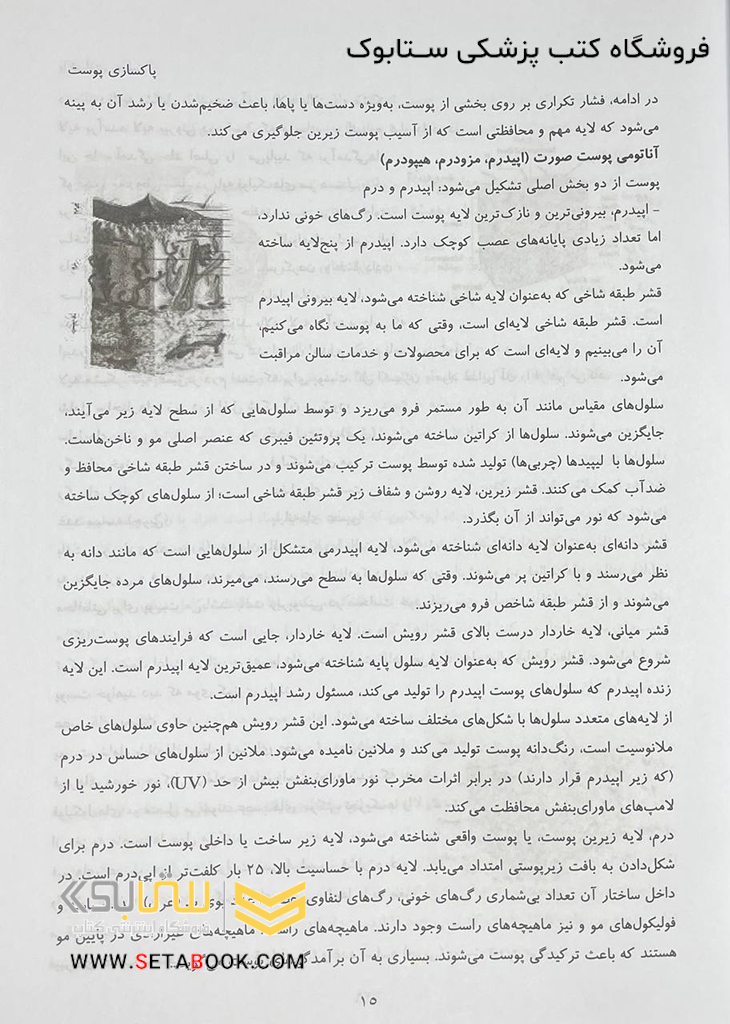 فروشگاه کتب پزشکی ستابوک
پاکسازی پوست
در ادامه، فشار تکراری بر روی بخشی از پوست، به‌ویژه دست‌ها یا پاها، باعث ضخیم‌شدن یا رشد آن به پینه
می‌شود که لایه مهم و محافظتی است که از آسیب پوست زیرین جلوگیری می‌کند.
آناتومی پوست صورت (اپیدرم، مزودرم، هیپودرم)
پوست از دو بخش اصلی تشکیل می‌شود: اپیدرم و درم
– اپیدرم، بیرونی‌ترین و نازک‌ترین لایه پوست است. رگ‌های خونی ندارد،
اما تعداد زیادی پایانه‌های عصب کوچک دارد. اپیدرم از پنج‌لایه ساخته
می‌شود.
قشر طبقه شاخی که به‌عنوان لایه شاخی شناخته می‌شود، لایه بیرونی اپیدرم
است. قشر طبقه شاخی لایه‌ای است، وقتی که ما به پوست نگاه می‌کنیم،
آن را می‌بینیم و لایه‌ای است که برای محصولات و خدمات سالن مراقبت
می‌شود.
سلول‌های مقیاس مانند آن به طور مستمر فرو می‌ریزد و توسط سلول‌هایی که از سطح لایه زیر می‌آیند،
جایگزین می‌شوند. سلول‌ها از کراتین ساخته می‌شوند، یک پروتئین فیبری که عنصر اصلی مو و ناخن‌هاست.
سلول‌ها با لیپیدها (چربی‌ها) تولید شده توسط پوست ترکیب می‌شوند و در ساختن قشر طبقه شاخی محافظ و
ضدآب کمک می‌کنند. قشر زیرین، لایه روشن و شفاف زیر قشر طبقه شاخی است؛ از سلول‌های کوچک ساخته
می‌شود که نور می‌تواند از آن بگذرد.
قشر دانه‌ای به‌عنوان لایه دانه‌ای شناخته می‌شود، لایه اپیدرمی متشکل از سلول‌هایی است که مانند دانه به
نظر می‌رسند و با کراتین پر می‌شوند. وقتی که سلول‌ها به سطح می‌رسند، می‌میرند، سلول‌های مرده جایگزین
می‌شوند و از قشر طبقه شاخص فرو می‌ریزند.
قشر میانی، لایه خاردار درست بالای قشر رویش است. لایه خاردار، جایی است که فرایندهای پوست‌ریزی
شروع می‌شود. قشر رویش که به‌عنوان لایه سلول پایه شناخته می‌شود، عمیق‌ترین لایه اپیدرم است. این لایه
زنده اپیدرم که سلول‌های پوست اپیدرم را تولید می‌کند، مسئول رشد اپیدرم است.
از لایه‌های متعدد سلول‌ها با شکل‌های مختلف ساخته می‌شود. این قشر رویش هم‌چنین حاوی سلول‌های خاص
ملانوسیت است، رنگ‌دانه پوست تولید می‌کند و ملانین نامیده می‌شود. ملانین از سلول‌های حساس در درم
(که زیر اپیدرم قرار دارند) در برابر اثرات مخرب نور ماورای‌بنفش بیش از حد (UV)، نور خورشید یا از
لامپ‌های ماورای‌بنفش محافظت می‌کند.
درم، لایه زیرین پوست، یا پوست واقعی شناخته می‌شود، لایه زیر ساخت یا داخلی پوست است. درم برای
شکل‌دادن به بافت زیرپوستی امتداد می‌یابد. لایه درم با حساسیت بالا، ۲۵ بار کلفت‌تر از اپی‌درم است. در
داخل ساختار آن تعداد بی‌شماری رگ‌های خونی، رگ‌های لنفاوی، و
فولیکول‌های مو و نیز ماهیچه‌های راست وجود دارند. ماهیچه‌های ماهیچه‌های در پایین مو
هستند که باعث ترکیدگی پوست می‌شوند. بسیاری به آن
ستابوک
فروشگاه اینترنتی کتاب
WWW.SETABOOK.COM
۱۵